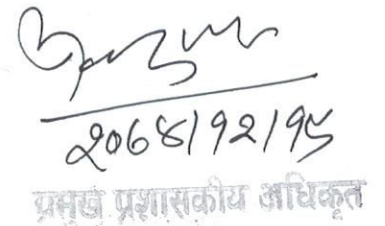 २०७४/१२/१५
प्रमुख प्रशासकीय अधिकृत